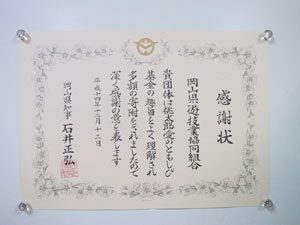 感謝状
岡山県遊技業協同組合
貴団体は桃太郎愛のともしび
基金の趣旨をよく理解され
多額の寄附をされましたので
深く感謝の意を表します
平成十四年十二月十二日
岡山県知事 石井正弘